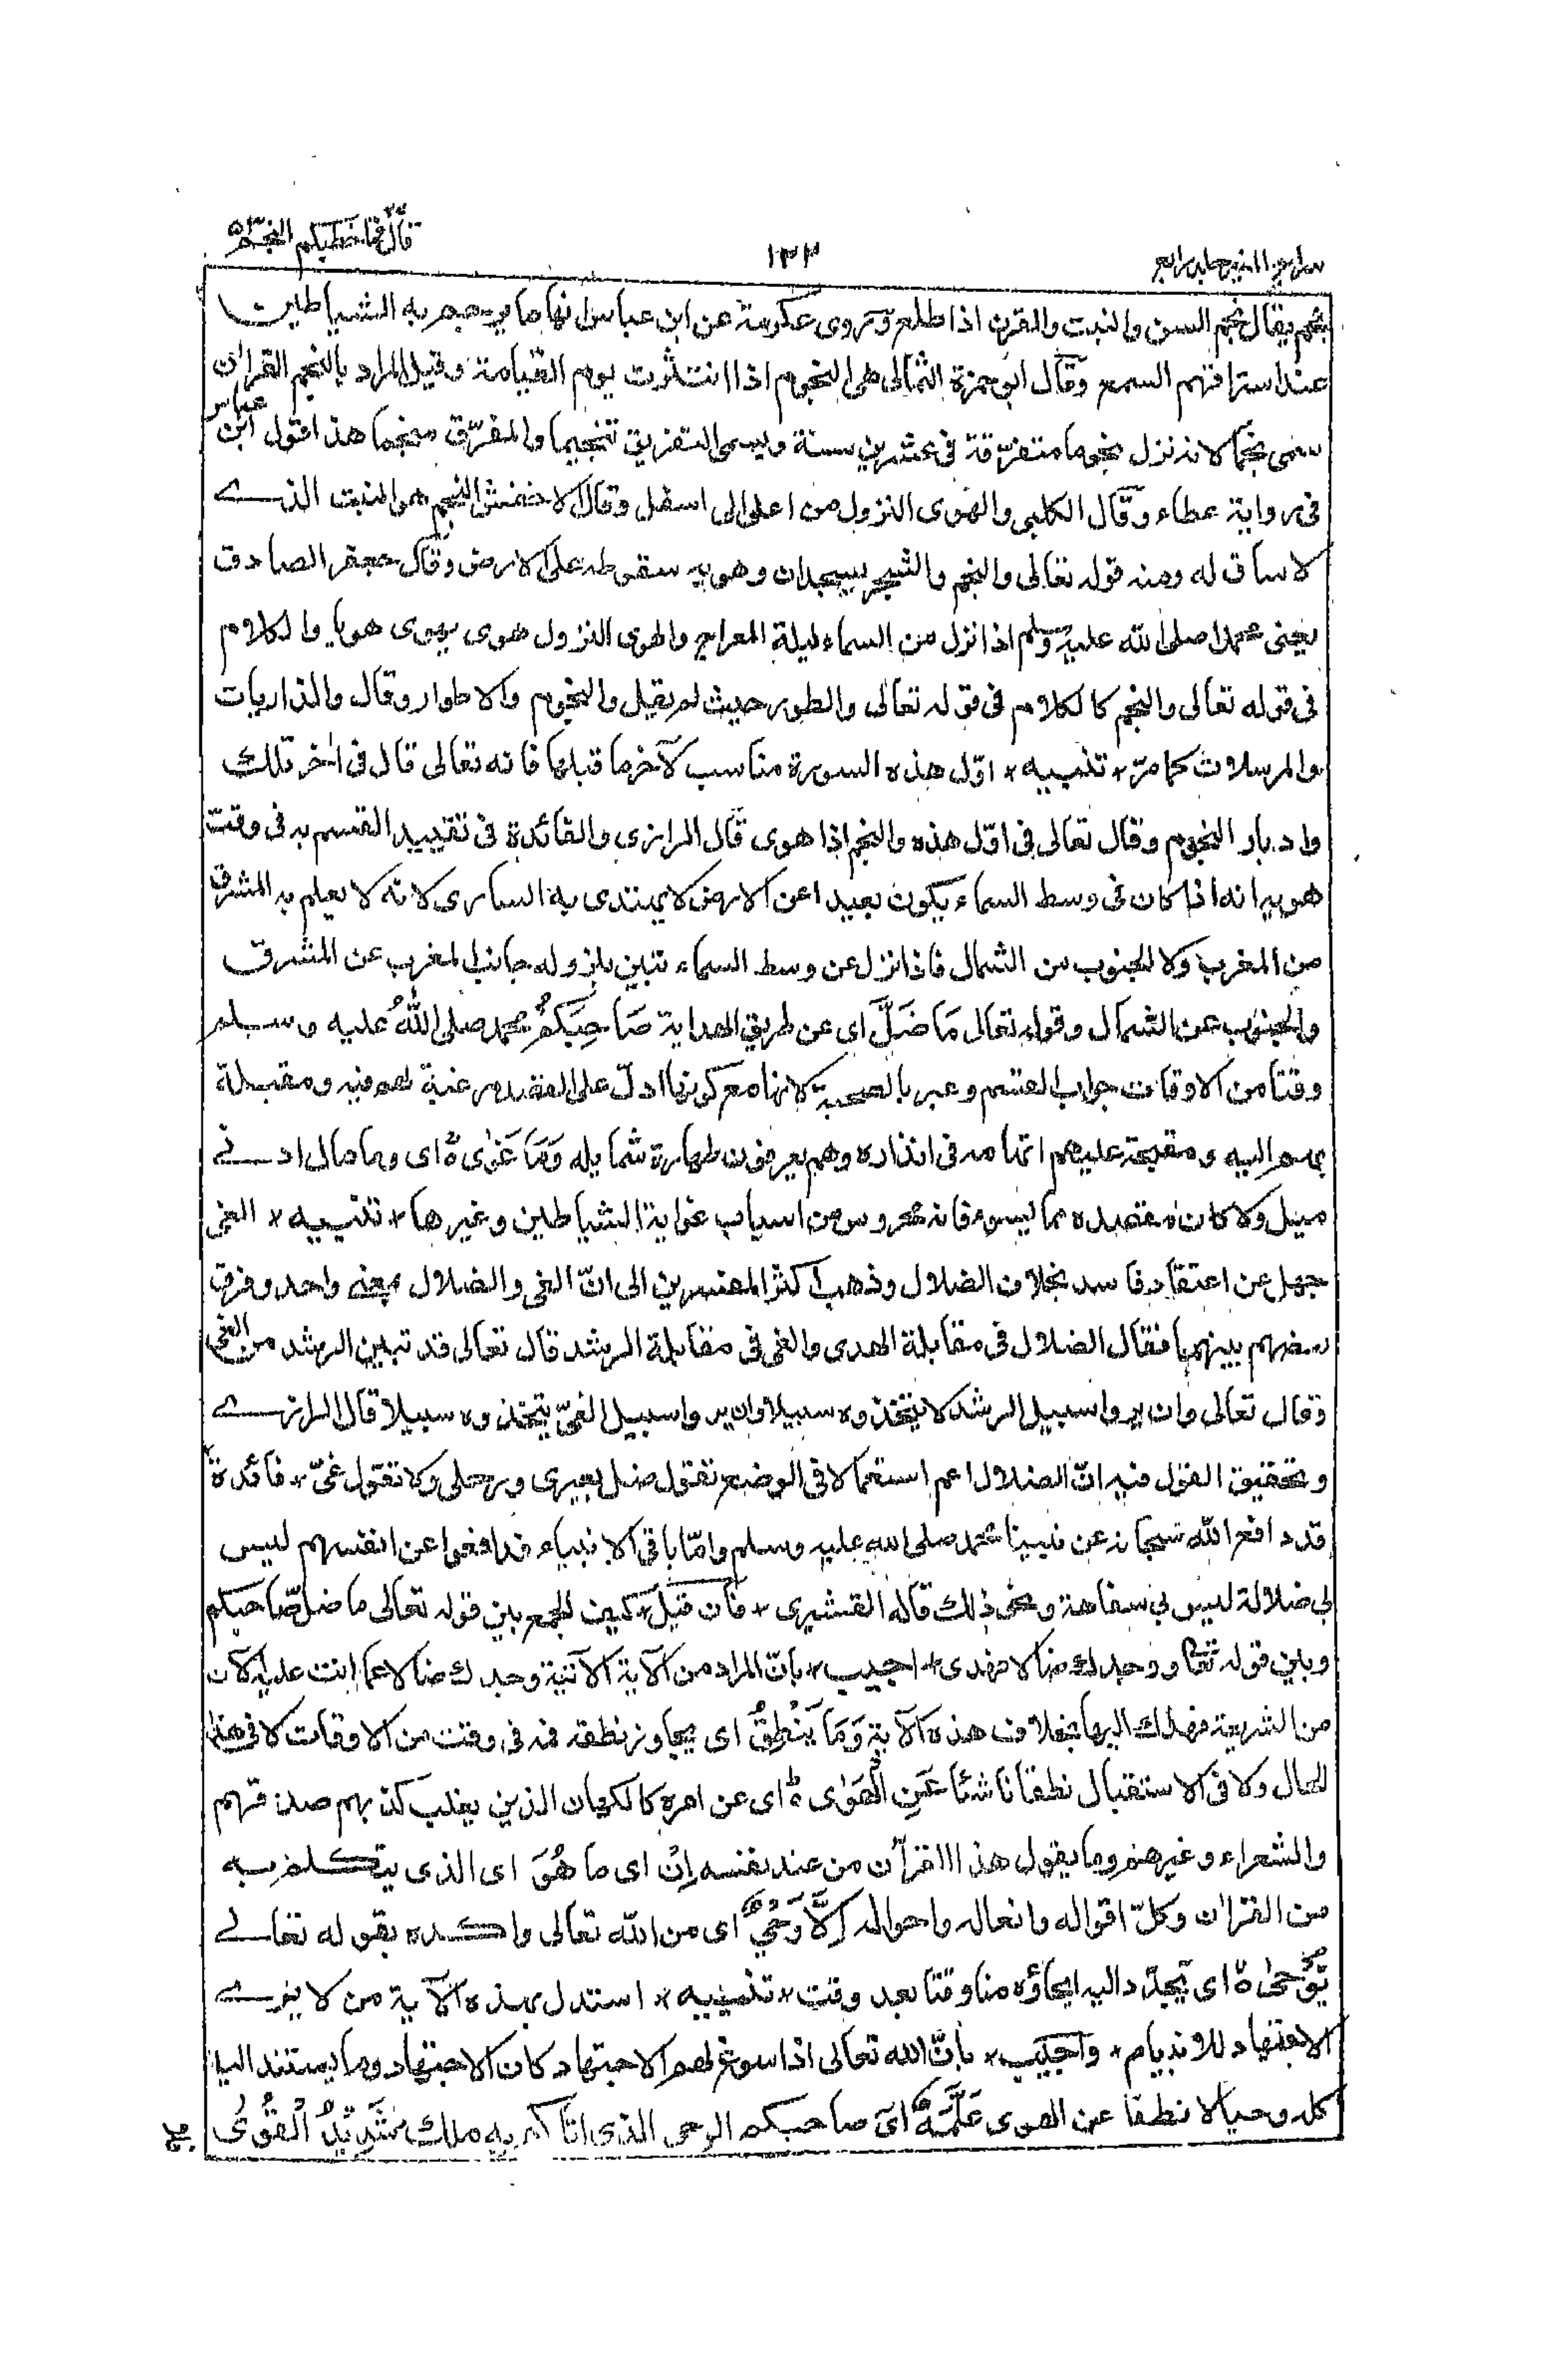 سراج المنير جلد رابع
١٣٣
قال فما خطبكم النجم ٥٣
نجم يقال نجم السن والنبت والقرن اذا طلع وروى عكرمة عن ابن عباس انها ما يرجم به الشياطين
عند استراقهم السمع وقال ابو حمزة الثمالى هى النجوم اذا انتثرت يوم القيامة وقيل المراد بالنجم القراٰن
سمى نجما لانه نزل نجوما متفرّقة فى عشرين سنة ويسمى التفريق تنجيما والمفرّق منجما هذا قول ابن عباس
فى رواية عطاء وقال الكلبى والهوى النزول من اعلى الى اسفل وقال الاخفش النجم هو النبت الذے
لا ساق له ومنه قوله تعالى والنجم والشجر يسجدان وهويه سقوطه على الارض وقال جعفر الصادق
يعنى محمدا صلى الله عليه وسلم اذا نزل من السماء ليلة المعراج والهوى النزول هوى يهوى هويا والكلام
فى قوله تعالى والنجم كالكلام فى قوله تعالى والطور حيث لم يقل والنجوم والاطوار وقال والذاريات
والمرسلات كما مرّ * تنبيه * اوّل هذه السورة مناسب لآخر ما قبلها فانه تعالى قال فى اٰخر تلك
وادبار النجوم وقال تعالى فى اوّل هذه والنجم اذا هوى قال الرازى والفائدة فى تقييد القسم به فى وقت
هويه انه اذا كان فى وسط السماء يكون بعيدا عن الارض لا يهتدى به السارى لانه لا يعلم به المشرق
من المغرب ولا الجنوب من الشمال فاذا نزل عن وسط السماء تبين بنزوله جانب المغرب عن المشرق
والجنوب عن الشمال وقوله تعالى مَا ضَلَّ اى عن طريق الهداية صَاحِبُكُمْ محمد صلى اللهُ عليه وسلم
وقتا من الاوقات جواب القسم وعبر بالصحبة لانها مع كونها ادلّ على القصد مرغبة لهم فيه ومقبلة
بهم اليه ومقبحة عليهم اتهامه فى انذاره وهم يعرفون طهارة شمايله وَمَا غَوٰى ۀ اى وما مال ادنے
ميل ولا كان مقصده مما يسوء فانه محروس من اسباب غواية الشياطين وغيرها * تنبيه * الغى
جهل عن اعتقاد فاسد بخلاف الضلال وذهب اكثر المفسرين الى انّ الغى والضلال بمعنى واحد وفرق
بعضهم بينهما فقال الضلال فى مقابلة الهدى والغى فى مقابلة الرشد قال تعالى قد تبين الرشد من الغى
وقال تعالى وان يروا سبيل الرشد لا يتخذوه سبيلا وان يروا سبيل الغىّ يتخذوه سبيلا قال الرازے
وتحقيق القول فيه انّ الضلال اعم استعمالا فى الوضع تقول ضل بعيرى ورحلى ولا تقول غىّ * فائدة
قد دافع الله سبحانه عن نبينا محمد صلى الله عليه وسلم وامّا باقى الانبياء فدافعوا عن انفسهم ليس
بى ضلالة ليس بى سفاهة ونحو ذلك قاله القشيرى * فان قيل * كيف الجمع بين قوله تعالى ما ضل صاحبكم
وبين قوله تعا ووجدك ضالا فهدى * اجيب * بانّ المراد من الآية الآتية وجدك ضالا عما انت عليه الآن
من الشريعة فهداك اليها بخلاف هذه الآية وَمَا يَنْطِقُ اى يجاوز نطقه فمه فى وقت من الاوقات لا فى هذا
الحال ولا فى الاستقبال نطقا ناشئا عَنِ الْهَوٰى ۀ اى عن امره كالكهان الذين يغلب كذبهم صدقهم
والشعراء وغيرهم وما يقول هذا القراٰن من عند نفسه اِنْ اى ما هُوَ اى الذى يتكلم به
من القراٰن وكلّ اقواله وافعاله واحواله اِلَّا وَحْيٌ اى من الله تعالى واكده بقوله تعالے
يُّوْحٰى ۀ اى يجدّد اليه ايحاؤه منا وقتا بعد وقت * تنبيه * استدل بهذه الآية من لا يرے
الاجتهاد للانبياء * واجيب * بانّ الله تعالى اذا سوغ لهم الاجتهاد كان الاجتهاد وما يستند اليه
كله وحيا لا نطقا عن الهوى عَلَّمَهٗ اى صاحبكم الوحى الذى اتاكم به ملك شَدِيْدُ الْقُوٰى